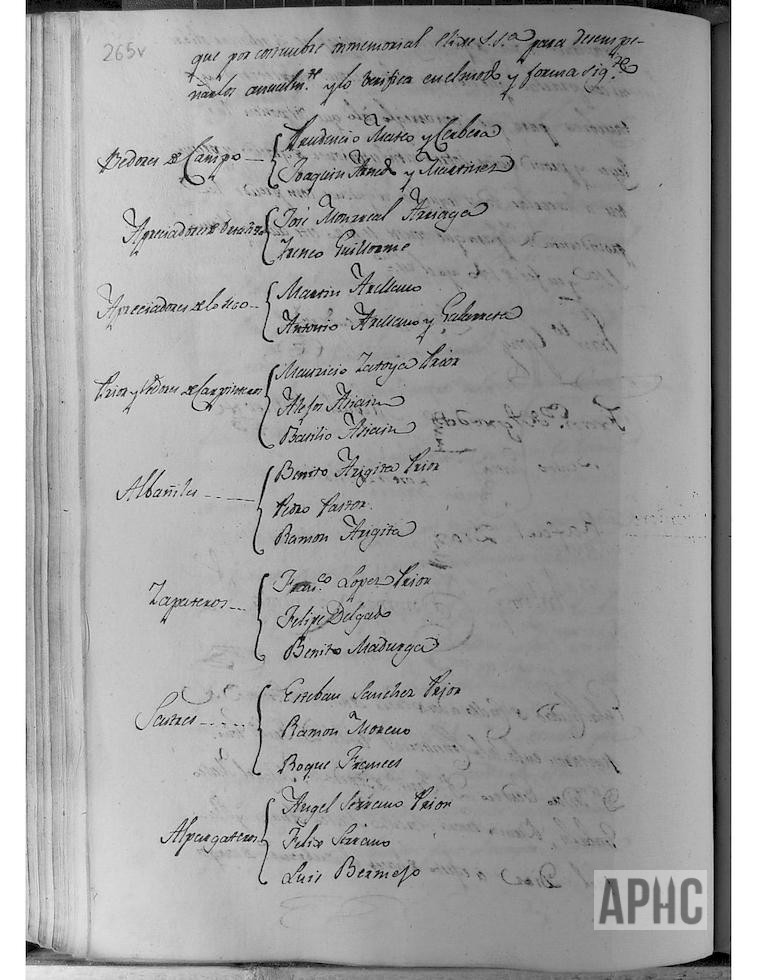 265v
que por costumbre inmemorial elixe S.S.a para desempe-
ñarlos anualm.te y lo berifica en el modo y forma sig.te
Vedores de Campo — Prudencio Mateo y Cerbera
Joaquin Arnedo y Martinez
Apreciadores de Jose Monrreal Arriaga
Ireneo Guillorme
Apreciadores de lo seco — Martin Arellano
Antonio Arellano y Galarreta
Prior y Vedores de Carpinteros Mauricio Zatoya Prior
Alejos Asiain
Basilio Asiain
Albañiles Benito Arigita Prior
Pedro Pastor
Ramon Arigita
Zapateros Fran.co Lopez Prior
Felipe Delgado
Benito Madurga
Sastres Esteban Sanchez Prior
Ramon Moreno
Roque Frances
Alpargateros Angel Serrano Prior
Felix Serrano
Luis Bermejo
APHC